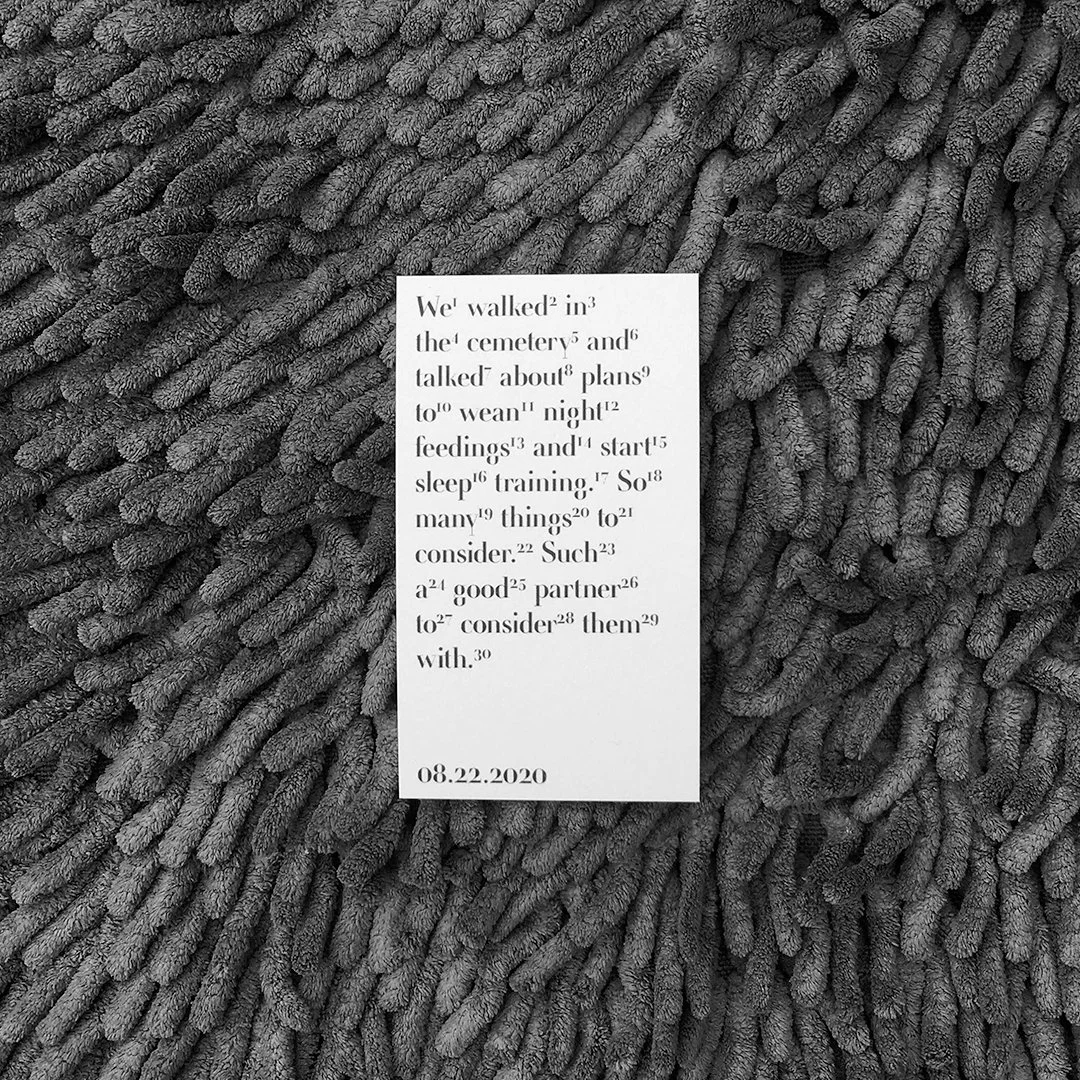 We¹ walked² in³
the⁴ cemetery⁵ and⁶
talked⁷ about⁸ plans⁹
to¹⁰ wean¹¹ night¹²
feedings¹³ and¹⁴ start¹⁵
sleep¹⁶ training.¹⁷ So¹⁸
many¹⁹ things²⁰ to²¹
consider.²² Such²³
a²⁴ good²⁵ partner²⁶
to²⁷ consider²⁸ them²⁹
with.³⁰
08.22.2020